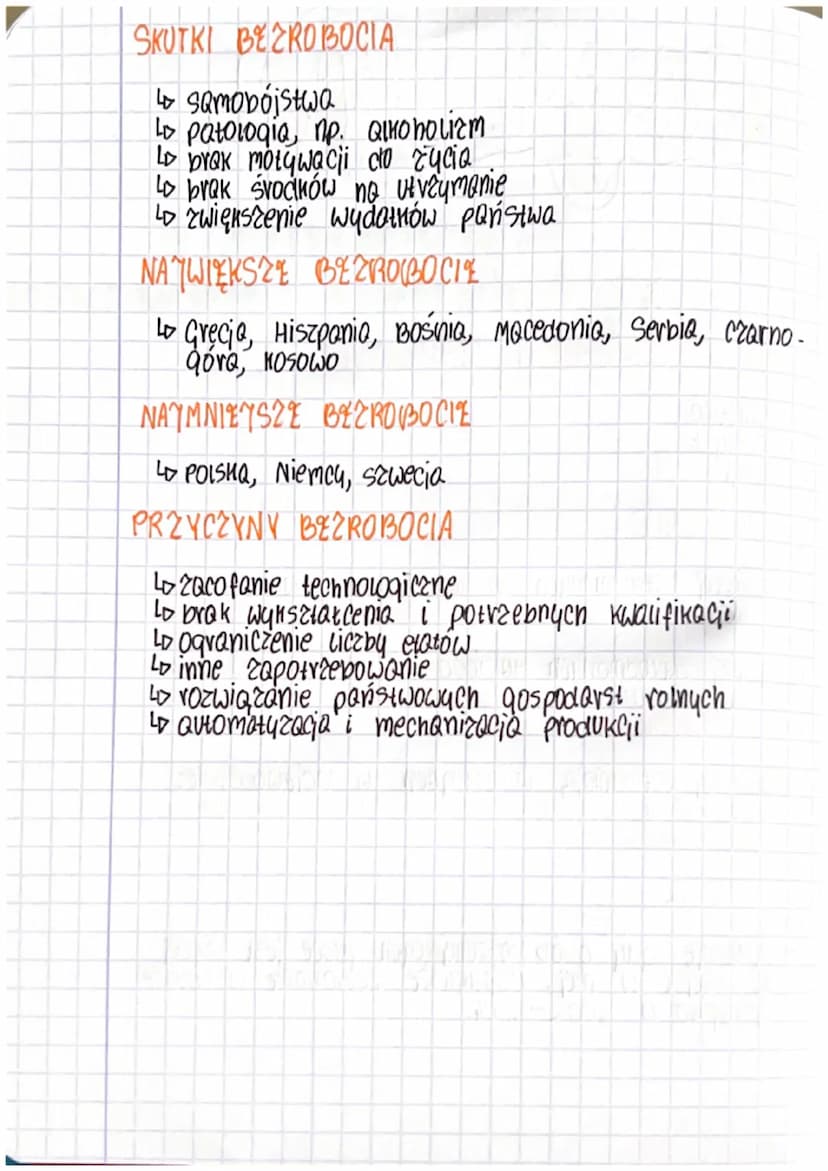 SKUTKI BEZROBOCIA
↳ samobójstwa
↳ patologia, np. alkoholizm
↳ brak motywacji do życia
↳ brak środków na utrzymanie
↳ zwiększenie wydatków państwa
NAJWIĘKSZE BEZROBOCIE
↳ Grecja, Hiszpania, Bośnia, Macedonia, Serbia, Czarno-
góra, Kosowo
NAJMNIEJSZE BEZROBOCIE
↳ Polska, Niemcy, Szwecja
PRZYCZYNY BEZROBOCIA
↳ zacofanie technologiczne
↳ brak wykształcenia i potrzebnych kwalifikacji
↳ ograniczenie liczby etatów
↳ inne zapotrzebowanie
↳ rozwiązanie państwowych gospodarst rolnych
↳ automatyzacja i mechanizacja produkcji